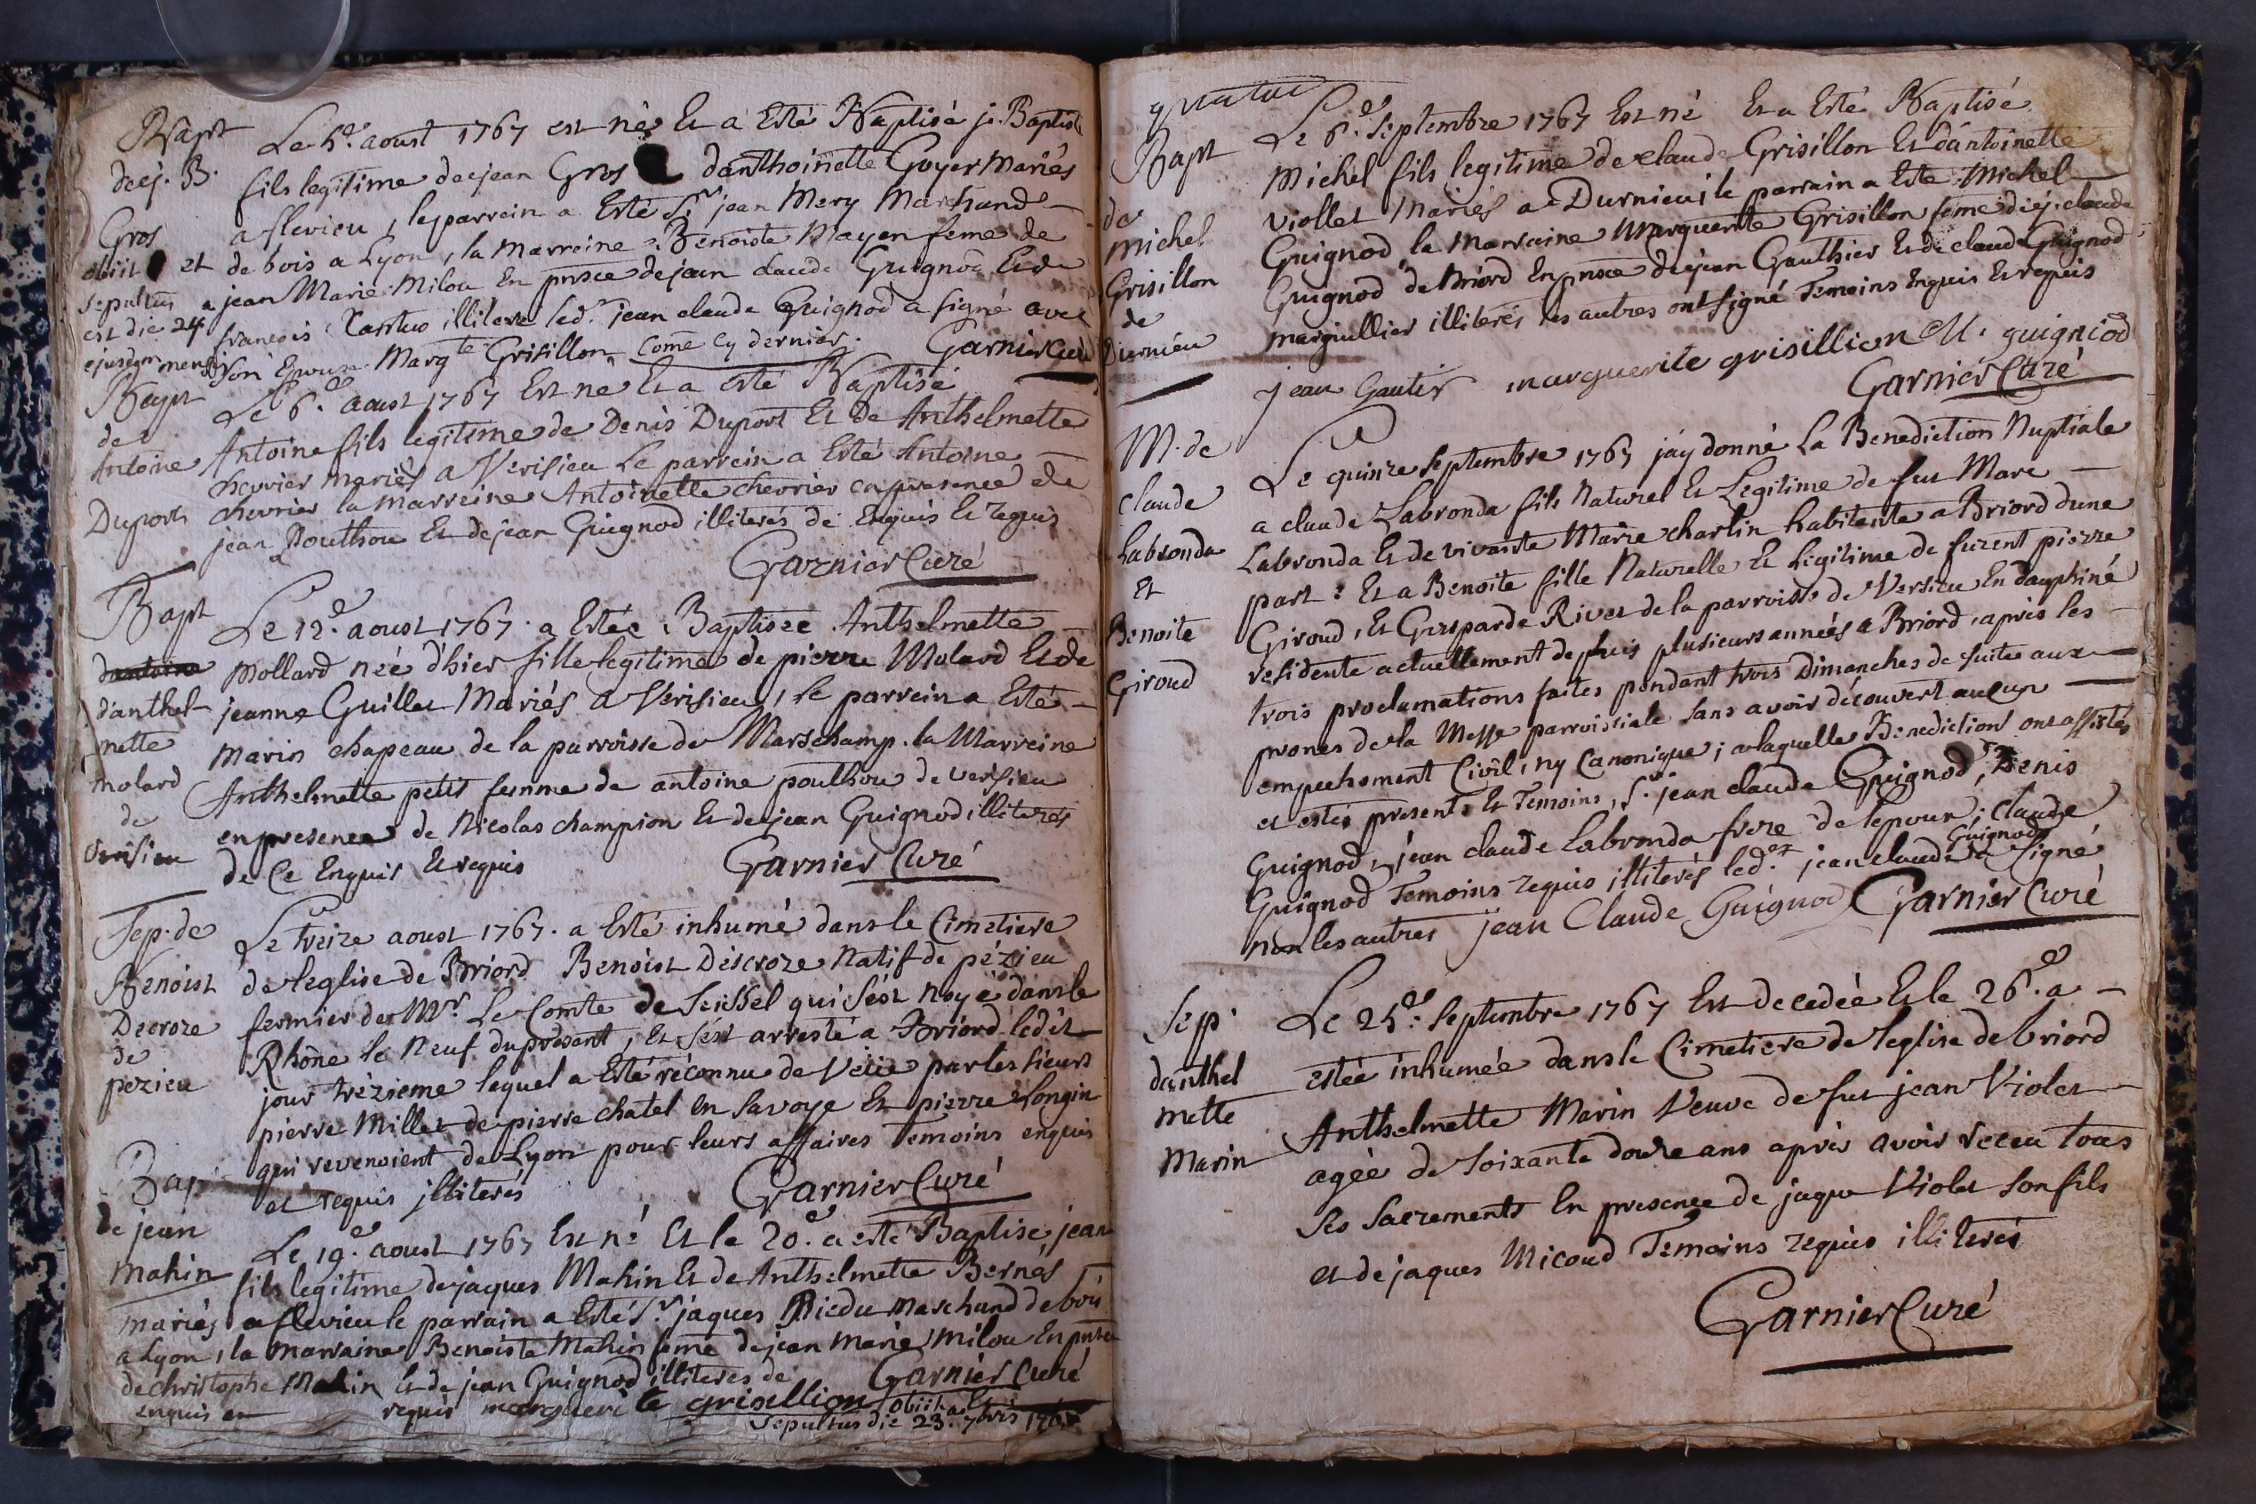 Bapt
de j. B.
Gros
obiit et
sepultus
est die 24
ejusdem mensis
Le 5.e aoust 1767 est né Et a Esté Baptisé j. Baptiste
fils legitime de jean Gros danthoinette Goyer Mariés
a flevieu, le parrein a Esté Sr jean Mery Marchand
de bois a Lyon, la Marreine Benoiste Mayen feme de
jean Marie Milou En pnsce de jean claude Guignod Et de
francois illitere led.t jean claude Guignod a signé avec
son Epouse Margte Grisillon come cy dernier. Garnier Curé
Bapt
de
Antoine
Duport
Le 6.e aoust 1767 Est né Et a esté Baptisé
Antoine fils legitime de Denis Duport Et de Anthelmette
chevrier mariés a Verisieu Le parrein a Esté Antoine
chevrier la marreine Antoinette chevrier en presence de
jean Pouthou Et de jean Guignod illiterés de Enquis Et requis
Garnier Curé
Bapt
dantoine
d'anthel
mette
molard
de
Verisieu
Le 12.e aoust 1767. a Estée Baptisée Anthelmette
Mollard née d'hier fille legitime de pierre Molard Et de
jeanne Guillet Mariés a Verisieu, le parrein a Esté
Marin chapeau de la parroisse de Marchamp. la Marreine
Anthelmette petit femme de antoine pouthou de verisieu
en presence de Nicolas champion Et de jean Guignod illiterés
de Ce Enquis Et requis Garnier Curé
Sep. de
Benoist
Decroze
de
pezieu
Le treize aoust 1767. a Esté inhumé dans le Cimetiere
de leglise de Briord Benoist Descroze Natif de pézieu
fermier de Mr. Le Comte de Seissel qui s'est noyé dans le
Rhône le Neuf du présent, Et s'est arresté a Briord ledit
jour trézieme lequel a Esté réconnu de Veüe par les sieurs
pierre Millet de pierre chatel en Savoye Et pierre Longin
qui revenoient de Lyon pour leurs affaires Temoins enquis
et requis illiterés Garnier Curé
Bap
de jean
Mahin
Le 19.e aoust 1767 Est né Et le 20.e a esté Baptisé jean
fils legitime de jaques Mahin Et de Anthelmette Bernés
mariés a flevieu le parrain a Esté Sr. jaques Biedu Marchand de bois
a Lyon, la marraine Benoiste Mahin feme de jean Marie Milou En pnsce
de christophe Mahin Et de jean Guignod illiteres de Garnier Curé
enquis et requis marguerite grisellion obiit Et
sepultus die 23. 7bris 1767
Bapt
de
Michel
Grisillon
de
Durnieu
Le 6.e septembre 1767 Est né Et a Esté Baptisé
Michel fils legitime de claude Grisillon Et dantoinette
Viollet Mariés a Durnieu, le parrain a Esté Michel
Guignod la Marraine Marguerite Grisillon feme de j. claude
Guignod de Briord En pnsce de jean Gauthier Et de claude Guignod
marguillier illiterés les autres ont signé Temoins Enquis Et requis
jean Gautir marguerite grisillion M. guigniod
Garnier Curé
M. de
Claude
Labronda
Et
Benoite
Giroud
Le quinze septembre 1767 j'ay donné La Benediction Nuptiale
a claude Labronda fils Naturel Et Legitime de fut Marc
Labronda Et de vivante Marie charlin habitante a Briord dune
part: Et a Benoite fille Naturelle Et Legitime de furent pierre
Giroud, Et Gasparde Rivet de la parroisse de Versieu En dauphiné
residente actuellement depuis plusieurs années a Briord, après les
trois proclamations faites pendant trois Dimanches de suitte aux
prones de la Messe parroissiale sans avoir découvert aucun
empechement Civil, ny Canonique; a laquelle Benediction ont assistés
et estés present Et Temoins, Sr. jean claude Guignod, Denis
Guignod, jean claude Labronda frere de lepoux; claude
Guignod Temoins requis illiterés led.t jean claude Guignod a signé
non les autres jean Claude Guignod Garnier Curé
Sep.
danthel
mette
Marin
Le 25.e septembre 1767 Est decedée Et le 26.e a
estée inhumée dans le Cimetiere de leglise de briord
Anthelmette Marin Veuve de fut jean Violet
agée de soixante douze ans après avoir receu tous
ses sacrements En presence de jaque Violet son fils
et de jaques Micoud Temoins requis illiterés
Garnier Curé